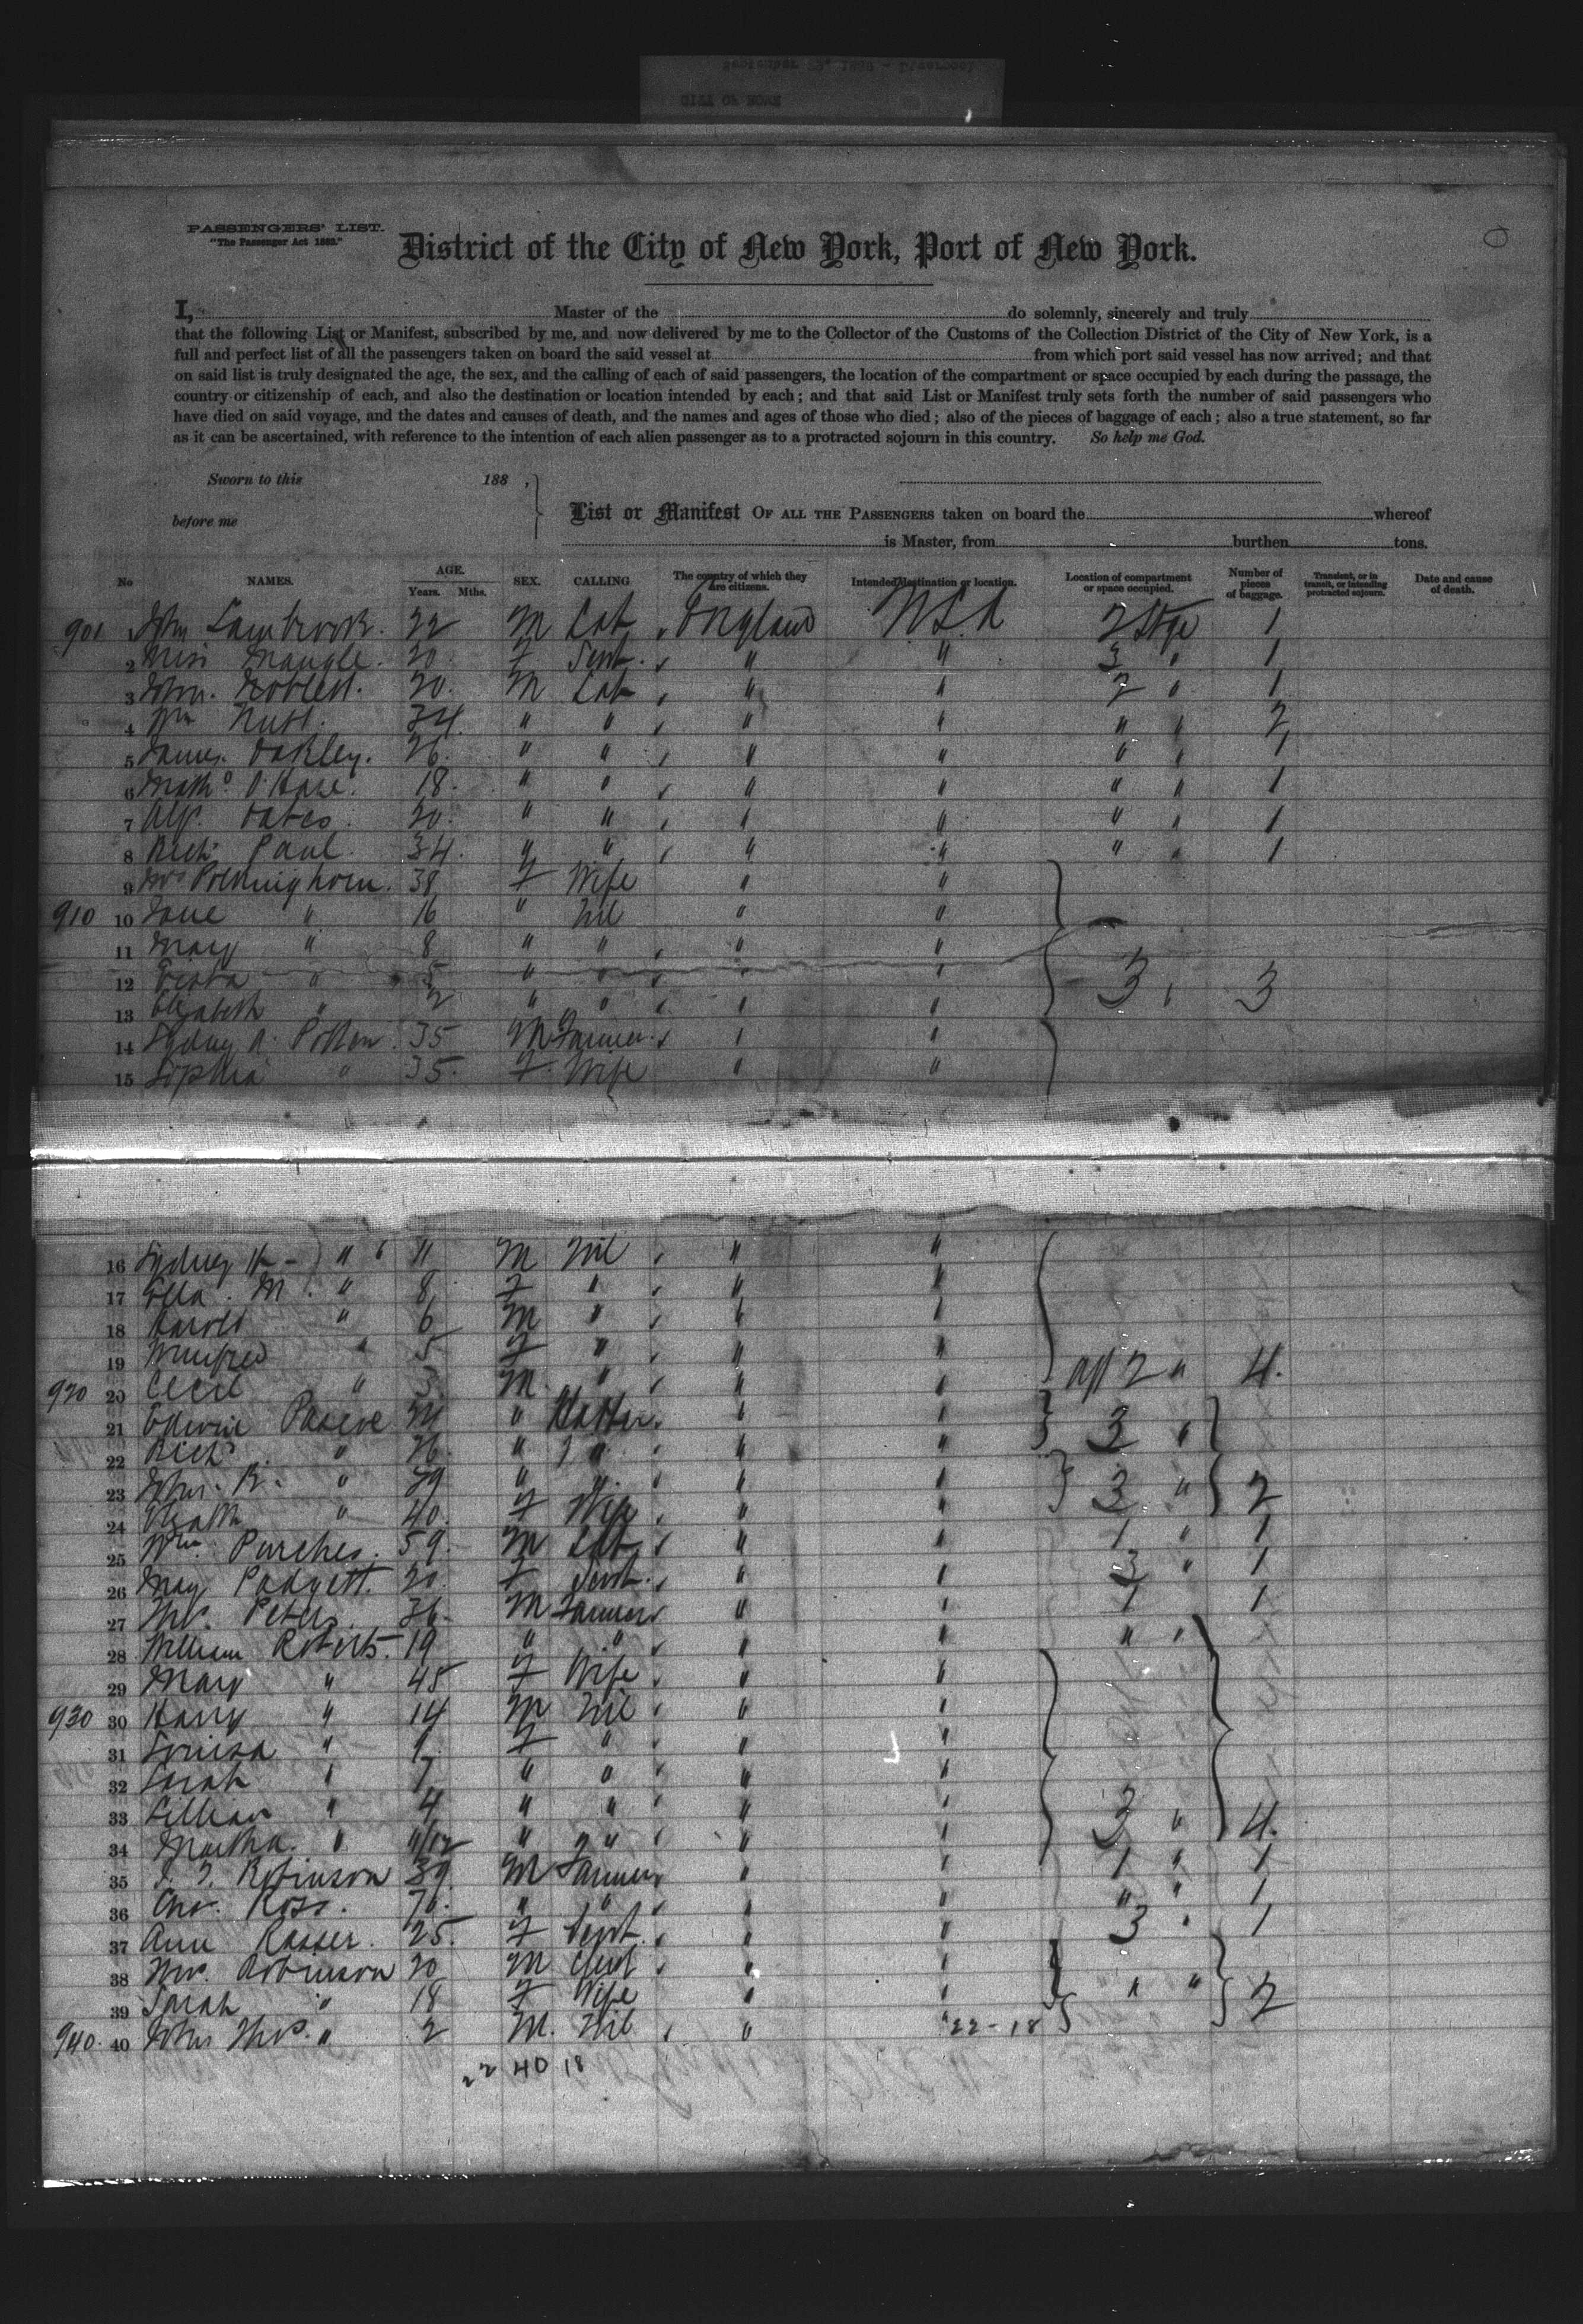 PASSENGERS' LIST.
"The Passenger Act 1882."
District of the City of New York, Port of New York.
I, Master of the do solemnly, sincerely and truly
that the following List or Manifest, subscribed by me, and now delivered by me to the Collector of the Customs of the Collection District of the City of New York, is a
full and perfect list of all the passengers taken on board the said vessel at from which port said vessel has now arrived; and that
on said list is truly designated the age, the sex, and the calling of each of said passengers, the location of the compartment or space occupied by each during the passage, the
country or citizenship of each, and also the destination or location intended by each; and that said List or Manifest truly sets forth the number of said passengers who
have died on said voyage, and the dates and causes of death, and the names and ages of those who died; also of the pieces of baggage of each; also a true statement, so far
as it can be ascertained, with reference to the intention of each alien passenger as to a protracted sojourn in this country. So help me God.
Sworn to this 188 ,
before me
List or Manifest OF ALL THE PASSENGERS taken on board the whereof
is Master, from burthen tons.
No NAMES. AGE. Years. Mths. SEX. CALLING The country of which they are citizens. Intended destination or location. Location of compartment or space occupied. Number of pieces of baggage. Transient, or in transit, or intending protracted sojourn. Date and cause of death.
901 John Lambrook. 22 M Lab England USA 2 Stge 1
2 Miss Mangle. 20. F Servt. " " 3 " 1
3 20. M Lab " " 2 " 1
4 Wm Nutt. 34. " " " " " " 2
5 James Oakley. 26. " " " " " " 1
6 O'Hare. 18. " " " " " " 1
7 Alf. Oates. 20. " " " " " " 1
8 Richd Paul. 34. " " " " " " 1
9 Mrs Polkinghorn. 38 F Wife " "
910 10 Jane " 16 " Nil " "
11 Mary " 8 " " " "
12 " 5 " " " "
13 Elizabeth " 2 " " " " 3 " 3
14 Sydney 35 M Farmer " "
15 Sophia " 35. F Wife " "
16 Sydney H " 11 M Nil " "
17 Ella. M. " 8 F " " "
18 Harold " 6 M " " "
19 Winifred " 5 F " " "
920 20 Cecil " 3 M. " " " all 2 " 4.
21 Edwin Pascoe " Hatter. " " 3 "
22 Richd " 26. " " " "
23 John. R. " 39 " " " " 3 " 2
24 " 40. F Wife " "
25 Wm Purches. 59. M Lab " " 1 " 1
26 May Padgett. 20. F Servt. " " 3 " 1
27 Thos. Peters. 36. M Farmer " " 1 1
28 William Roberts. 19 " " " " " "
29 Mary " 45 F Wife " "
930 30 Harry " 14 M Nil " "
31 Louisa " 9. F " " "
32 Sarah " 7 " " " "
33 Lillian " 4 " " " " 3 " 4.
34 Martha. " 11/12 " " " "
35 Robinson 39. M Farmer " " 1 " 1
36 Ross. " " " " " " 1
37 Ann 25. F Servt. " " 3 " 1
38 Thos. Robinson 20 M " " " " 2
39 Sarah " 18 F Wife " "
940. 40 John Thos. " 2 M. Nil " 22-18
22 40 18